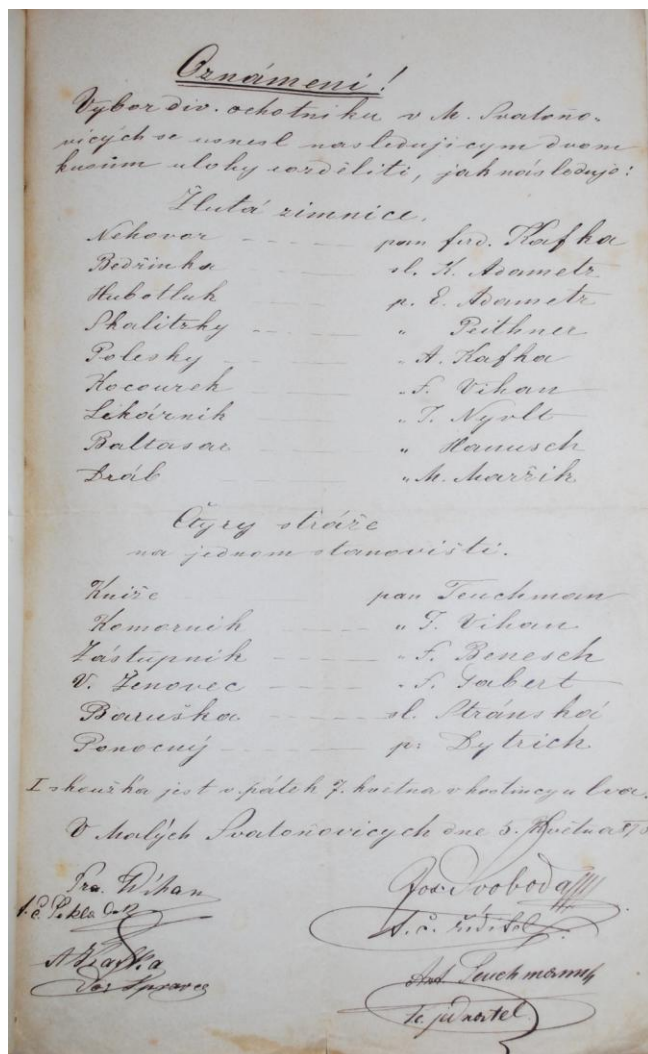 Oznámení!
Výbor div. ochotníku v M. Svatoňo-
vicých se usnesl nasledujicym dvom
kusům ulohy rozděliti, jak následuje:
Žlutá zimnice.
Nehovor - - - pan ferd. Kafka
Bedřinka sl. K. Adametz
Hubotluk p. E. Adametz
Skalitzky - - - " Peithner
Polesky - - - " A. Kafka
Kocourek - - - " F. Vihan
Likárnik - - - " T. Nyvlt
Baltasar - - - " Hanusch
Dráb - - - " M. Maržik
Čtyry stráže
na jednom stanovišti.
Kniže - - - pan Teuchman
Komorník - - - " F. Vihan
Zástupník - - - " F. Benesch
V. Ženovec - - - " F. Gabert
Baruška - - - sl. Stránská
Ponocný - - - p. Dytrich
I zkouška jest v pátek 7. května v hostincy u lva.
V Malých Svatoňovicych dne 5. Května
Fra. Wihan
Jos. Svoboda
t. č. ředitel
A Kafka
Ant Teuchmann
t. č. jednatel